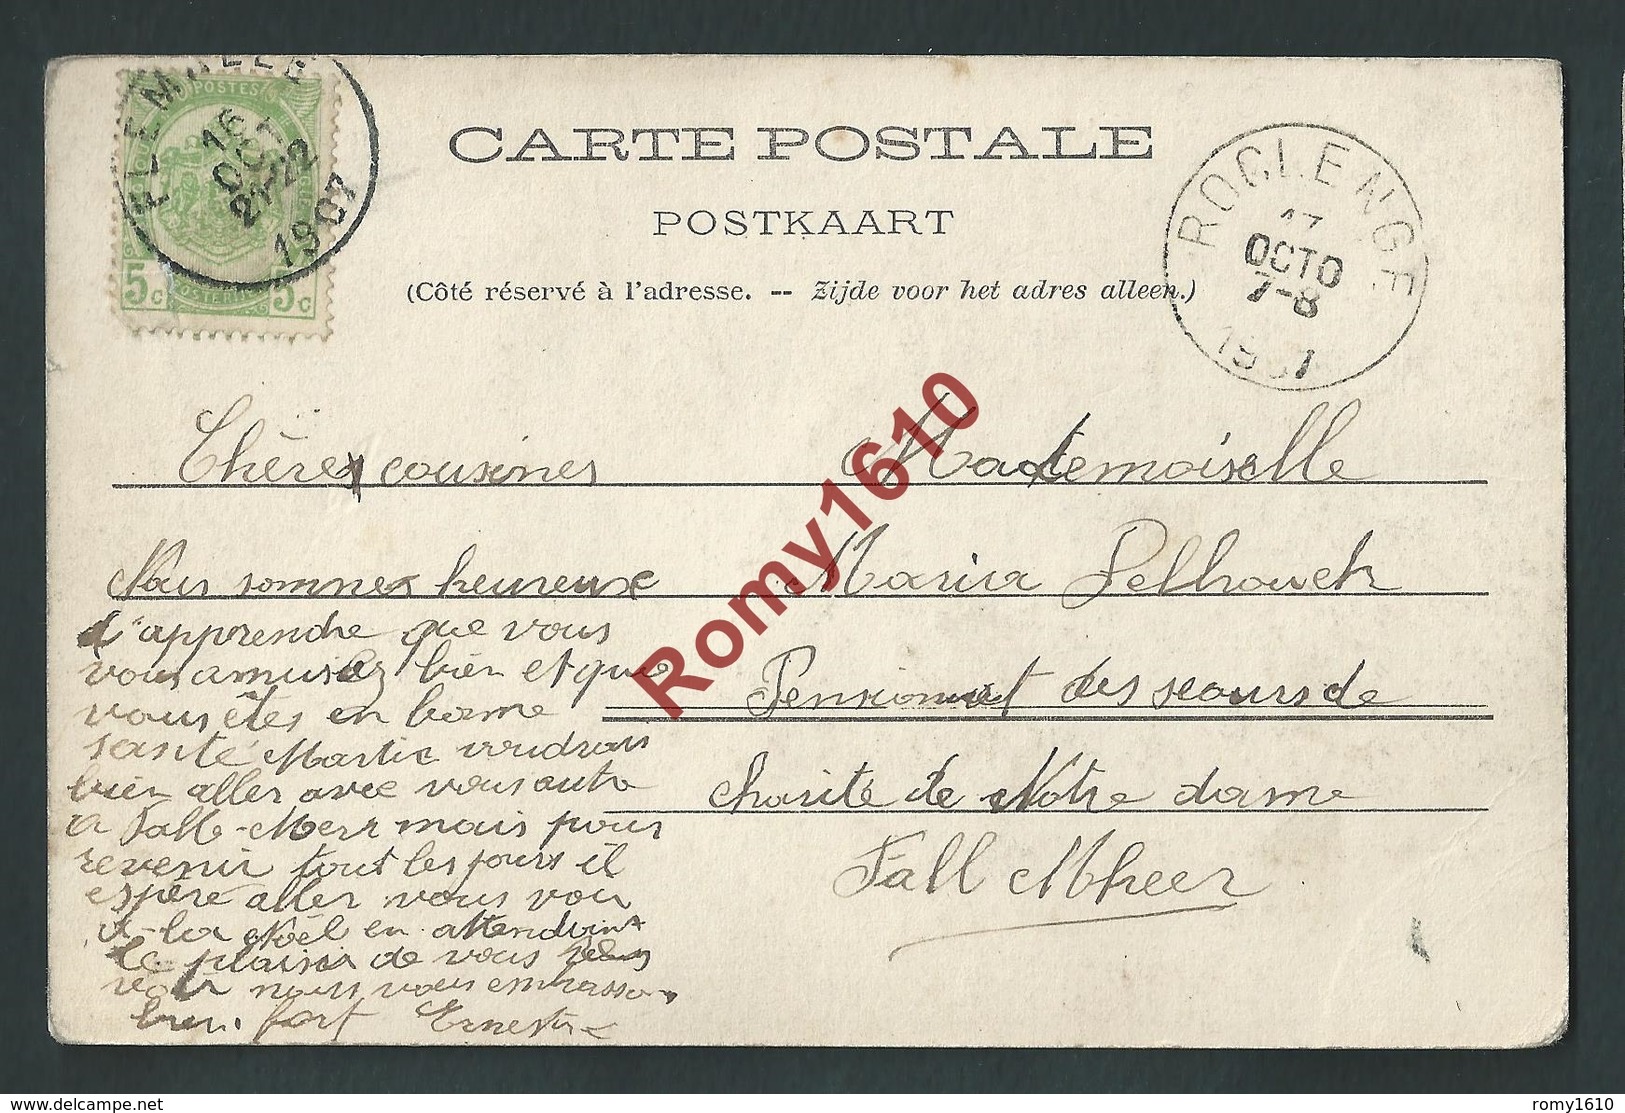 FLEMALLE
16
OCT
21-22
1907
POSTES
5c 5c
CARTE POSTALE
POSTKAART
(Côté réservé à l'adresse. -- Zijde voor het adres alleen.)
ROCLENGE
17
OCTO
7-8
Chères cousines
Nous sommes heureuse
d'apprendre que vous
vous amusez bien et que
vous êtes en bonne
santé Martie voudrais
bien aller avec vous auto
a Fall-Meer mais pour
revenir tout les jours il
espère aller vous voir
a la Noël en attendant
le plaisir de vous
voir nous vous embrassons
bien fort Ernestine
Mademoiselle
Maria
Pensionnat des seours de
charité de Notre dame
Fall Mheer
Romy1610
www.delcampe.net
romy1610